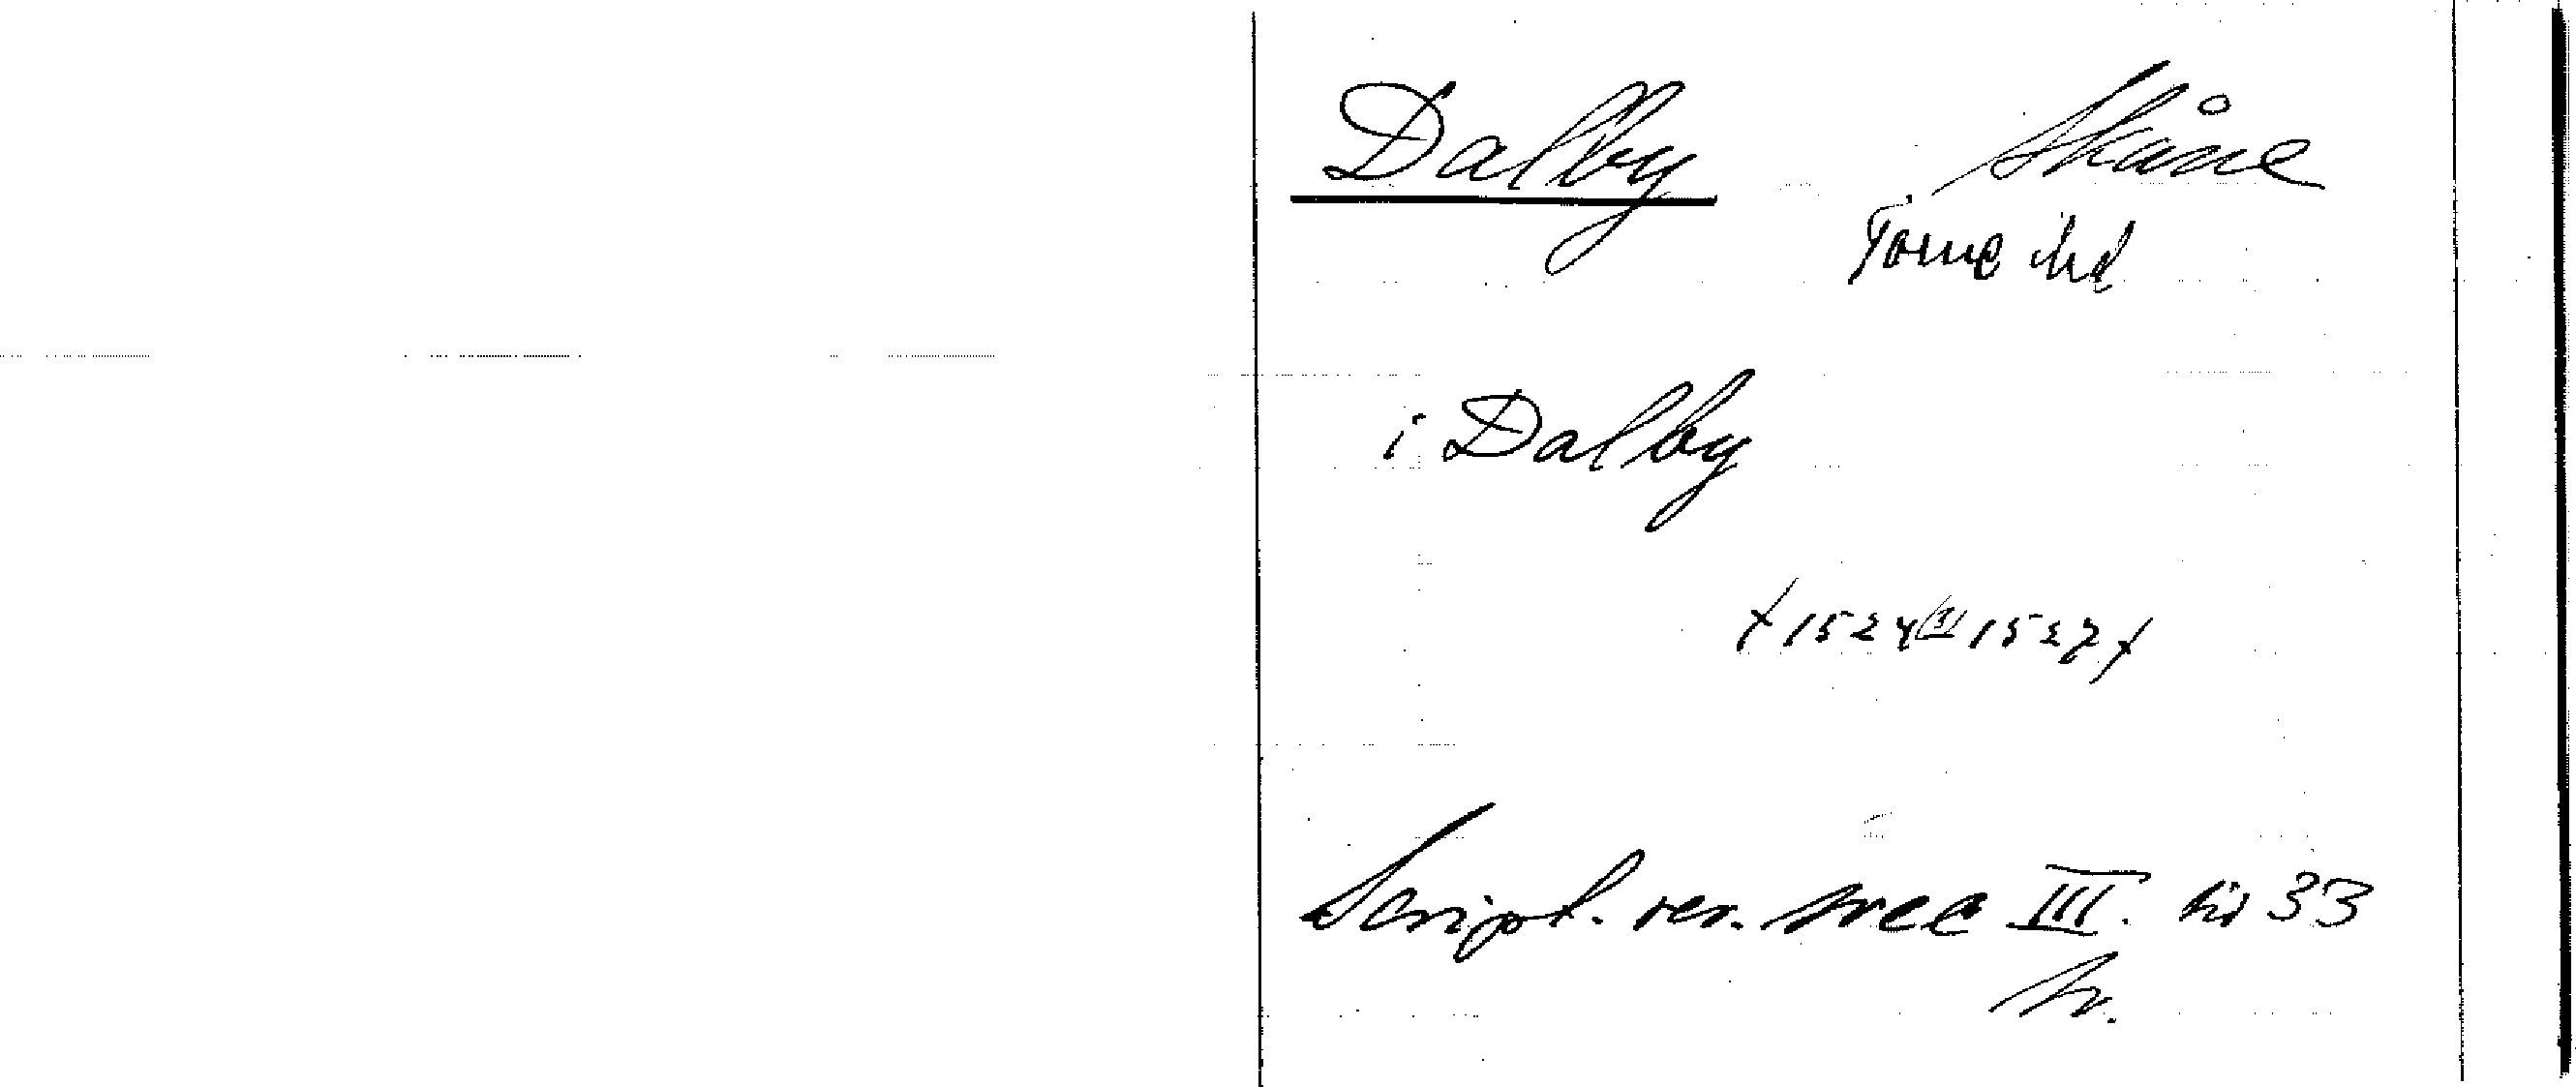 Dalby Skåne
Torna hd
i Dalby
1524 1527
Script. rer. svec III. 33
tr.